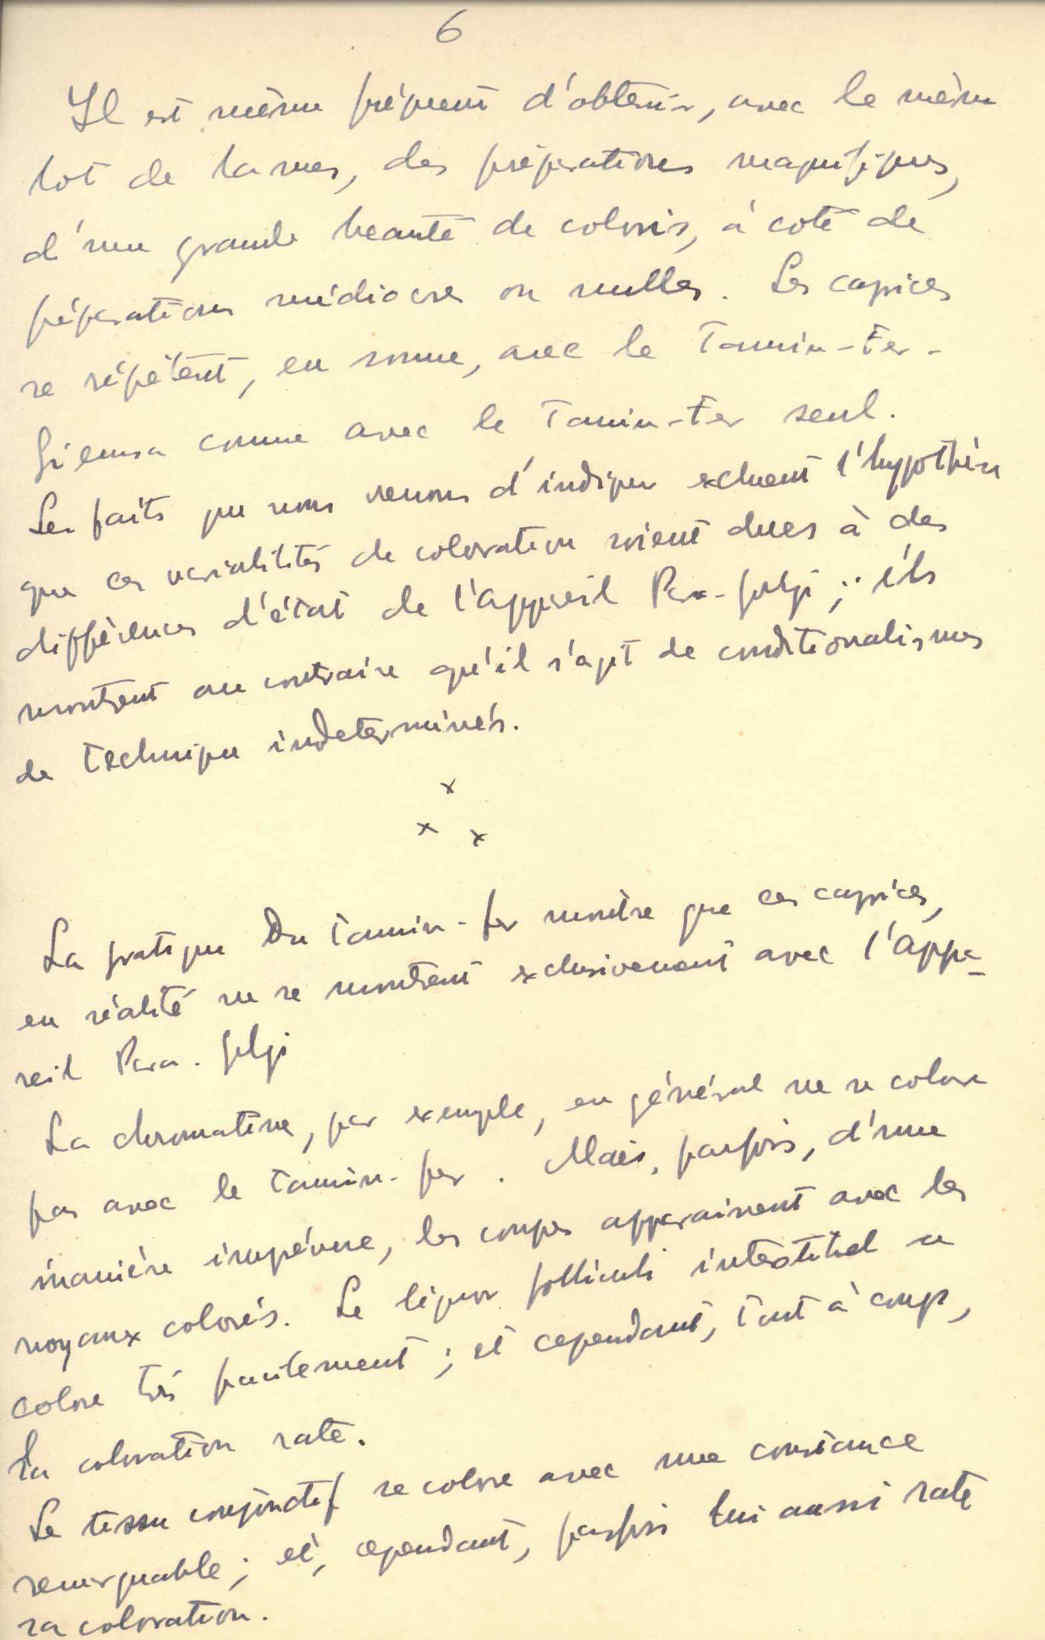 6
Il est même fréquent d'obtenir, avec le même
lot de lames, des préparations magnifiques,
d'une grande beauté de coloris, à coté de
préparations médiocres ou nulles. Les caprices
se répètent, en somme, avec le Tannin-Fer-
Giemsa comme avec le Tannin-Fer seul.
Les faits que nous venons d'indiquer excluent l'hypothèse
que ces variabilités de coloration soient dues à des
différences d'état de l'appareil Para-Golgi; ils
montrent au contraire qu'il s'agit de conditionalismes
de technique indeterminés.
x
x x
La pratique du Tannin-fer montre que ces caprices,
en réalité ne se montrent exclusivement avec l'appa-
reil Para-Golgi
La chromatine, par exemple, en général ne se colore
pas avec le Tannin-fer. Mais, parfois, d'une
manière imprévue, les coupes apparaissent avec les
noyaux colorés. Le liquor folliculi interstitiel se
colore très facilement; et cependant, tout à coup,
la coloration rate.
Le tissu conjonctif se colore avec une constance
remarquable; et, cependant, parfois lui aussi rate
sa coloration.